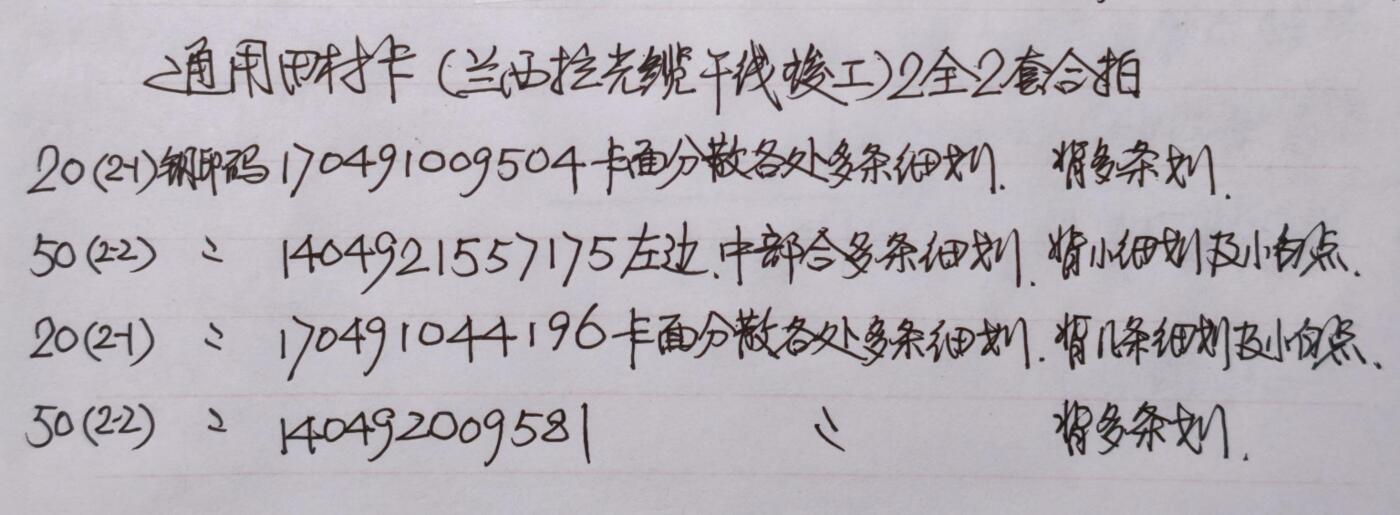 通用田村卡(兰西拉光缆干线竣工)2全2套合拍
20(2-1)钢印码170491009504卡面分散各处多条细划.背多条划.
50(2-2) 〃 1404921557175左边.中部合多条细划.背小细划及小白点.
20(2-1) 〃 170491044196卡面分散各处多条细划.背几条细划及小白点.
50(2-2) 〃 140492009581 〃 背多条划.